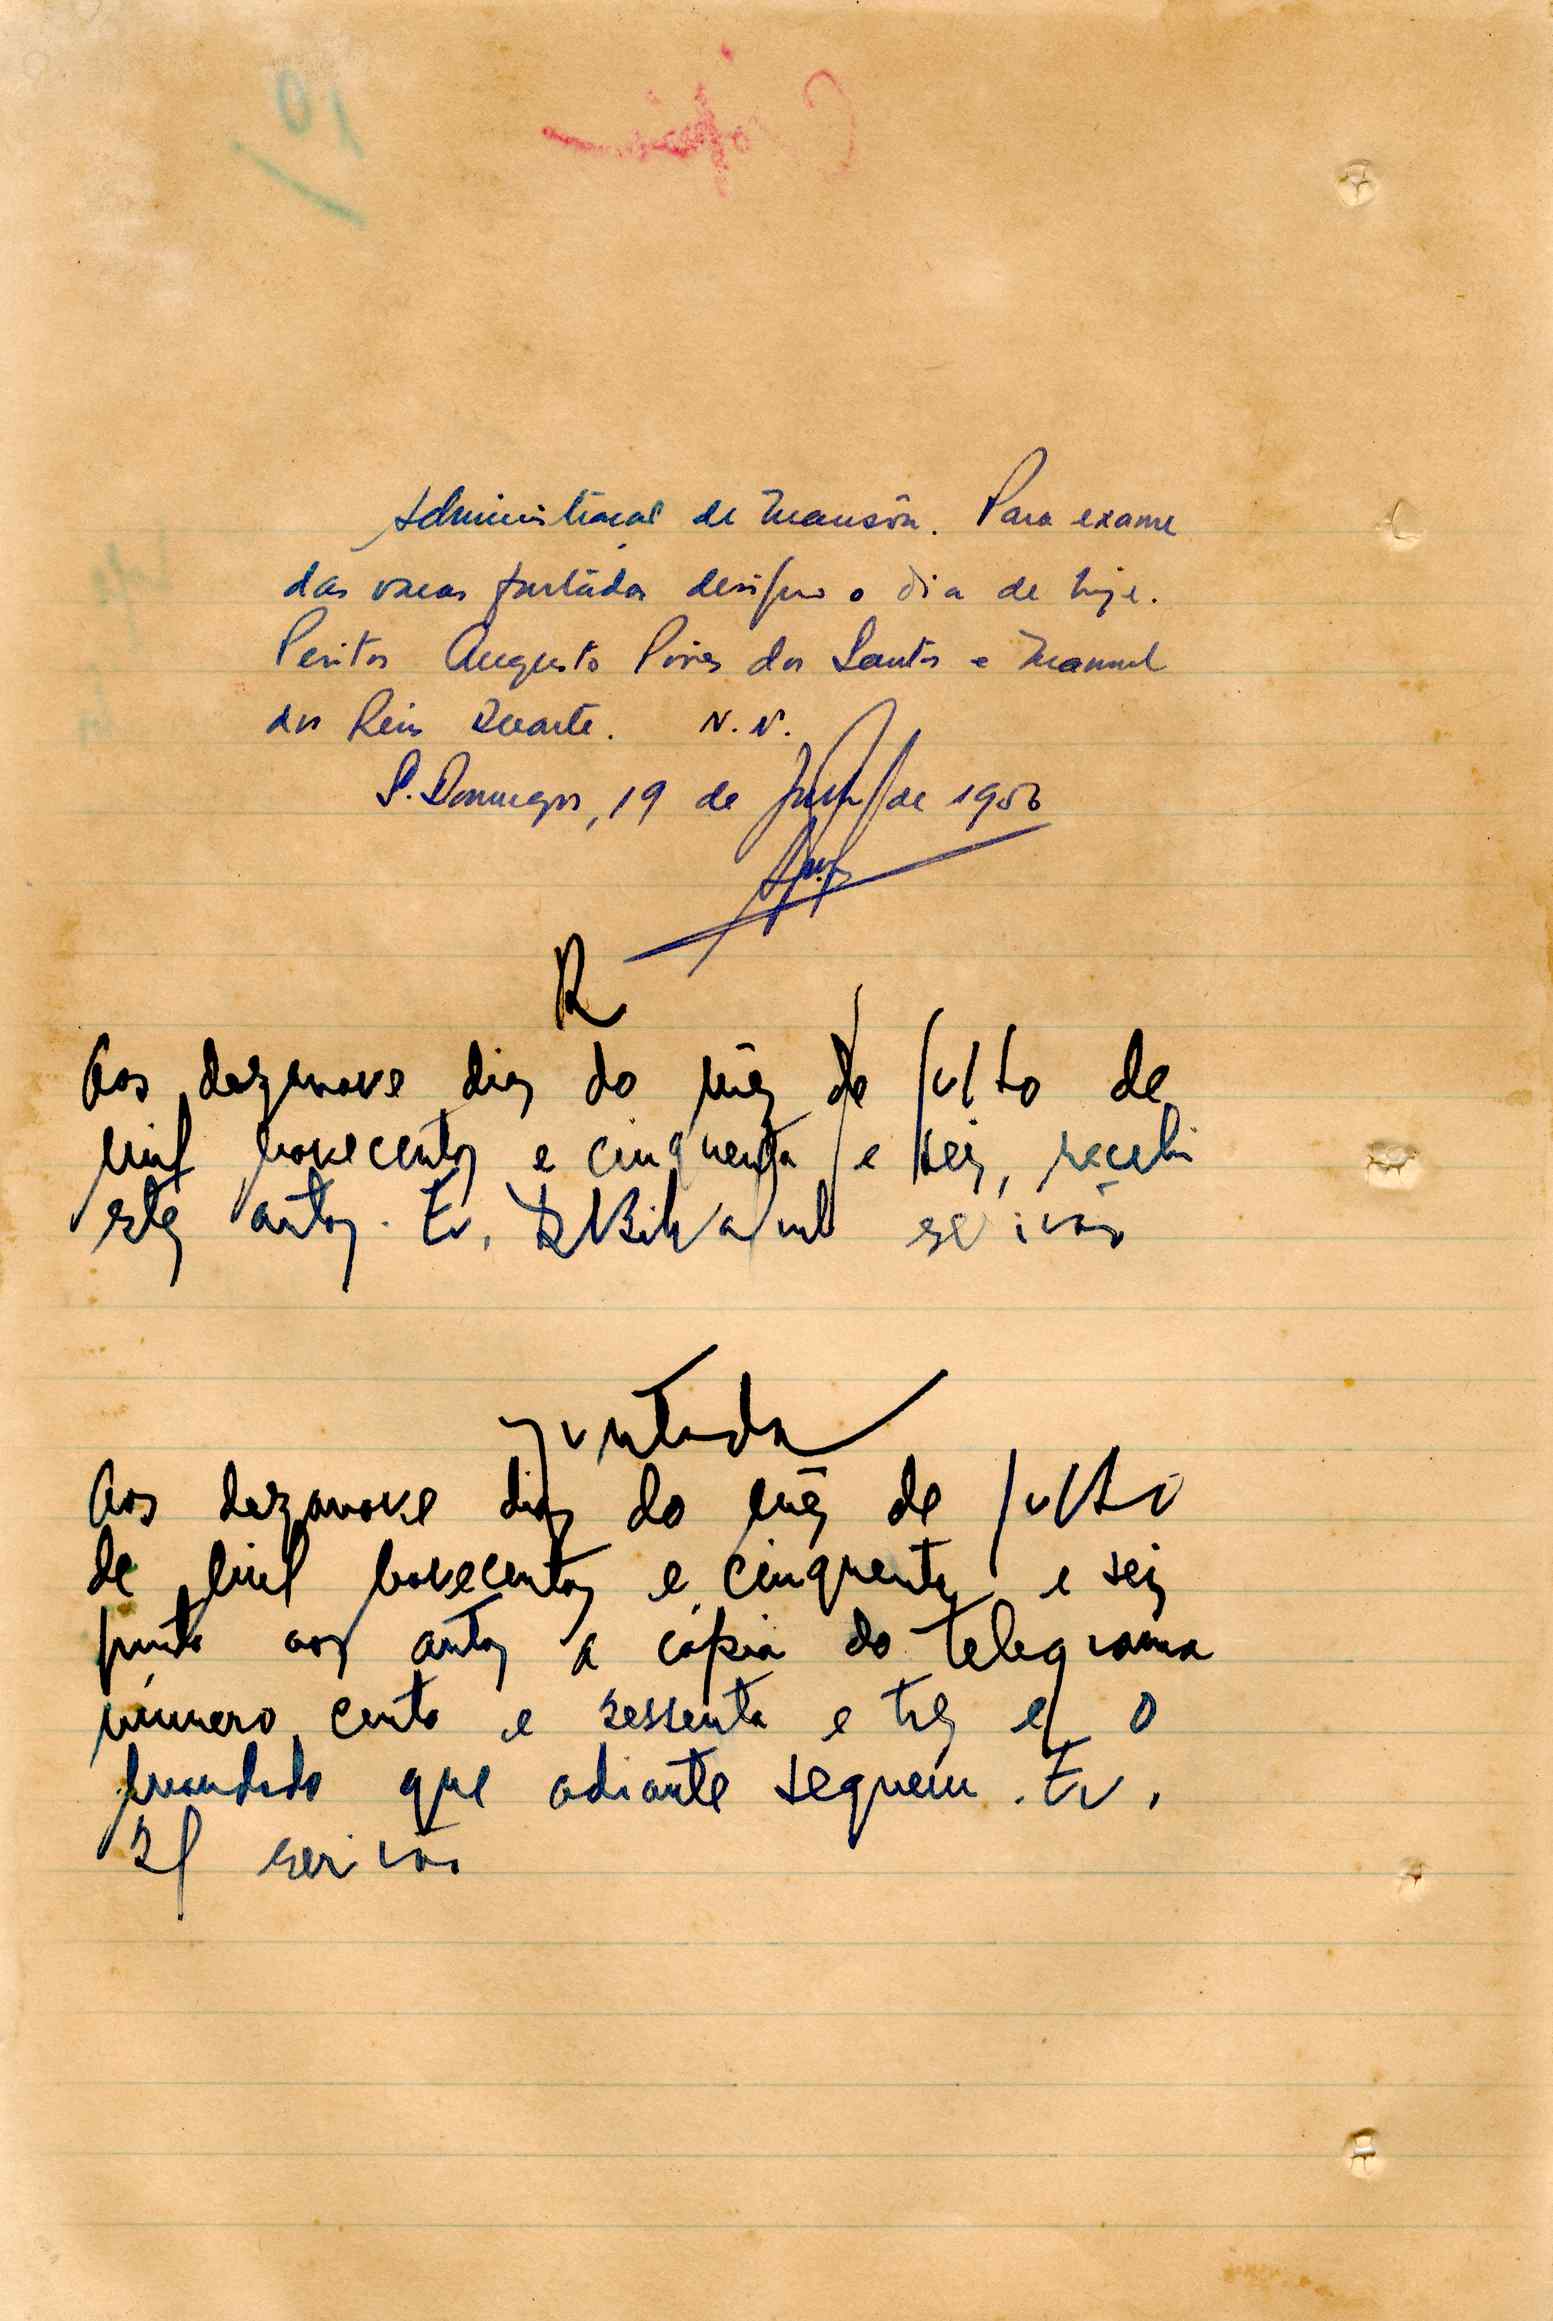 Administração de Mansôa. Para exame
das vacas furtadas designo o dia de hoje.
Peritos Augusto Pires dos Santos e Manuel
dos Reis Duarte. N.N.
S. Domingos, 19 de Julho de 1956
R
Aos dezanove dias do mês de Julho de
mil novecentos e cinquenta e seis, recebi
estes autos. Eu, escrivão
Juntada
Aos dezanove dias do mês de Julho
de mil novecentos e cinquenta e seis
junto aos autos a cópia do telegrama
número cento e sessenta e três e o
mandado que adiante seguem. Eu,
escrivão